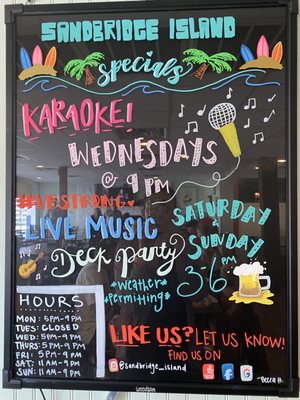 SANDBRIDGE ISLAND
Specials
KARAOKE!
WEDNESDAYS
@ 9 PM
#VBSTRONG
LIVE MUSIC
Deck party
*weather*
*permitting*
SATURDAY
&
SUNDAY
3-6 PM
HOURS
MON: 5PM-9PM
TUES: CLOSED
WED: 5PM-9PM
THURS: 5PM-9PM
FRI: 5PM-9PM
SAT: 11AM-9PM
SUN: 11AM-9PM
LIKE US? LET US KNOW!
FIND US ON
@sandbridge_island
f
G
woodsam